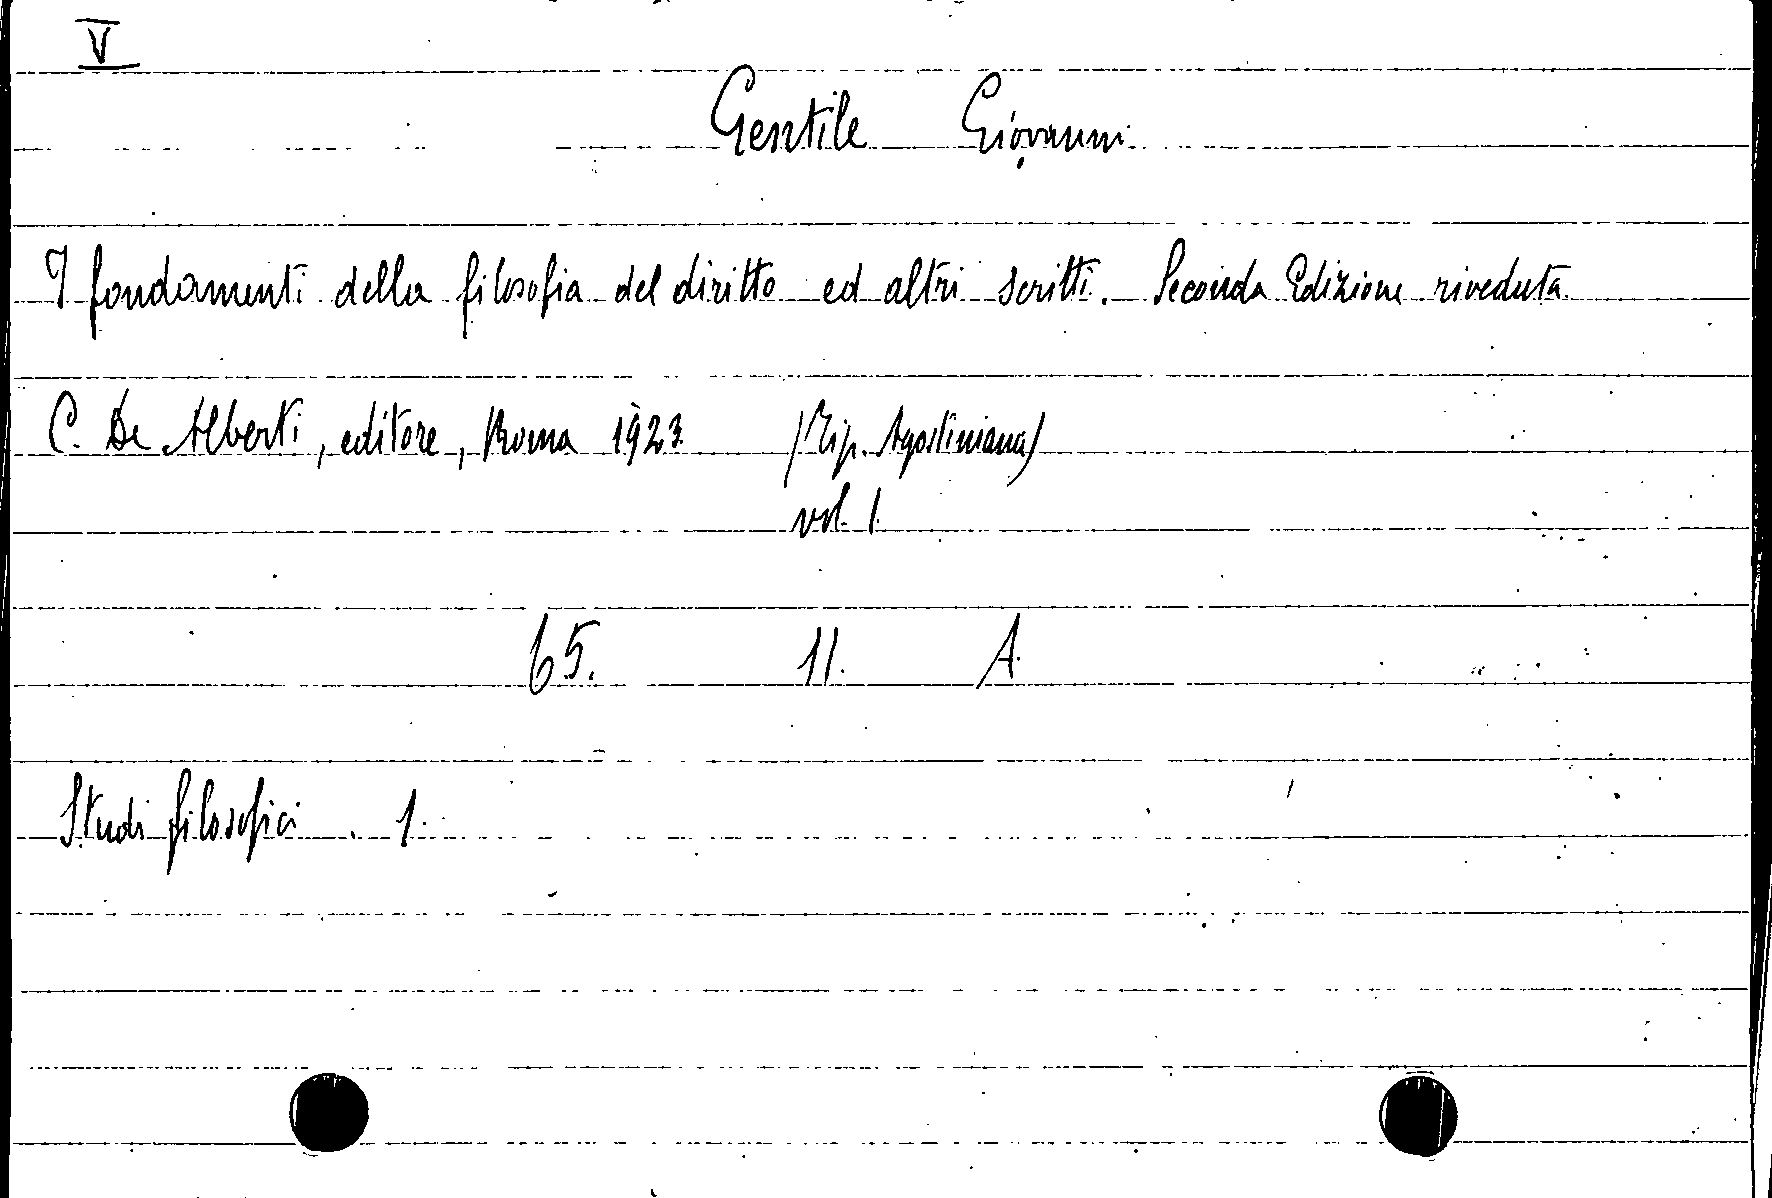 V
Gentile Giovanni
I fondamenti della filosofia del diritto ed altri scritti. Seconda Edizione riveduta
C. De Alberti, editore, Roma 1923 (Tip. Agostiniana)
vol. 1.
65. 11. A.
Studi filosofici. 1.